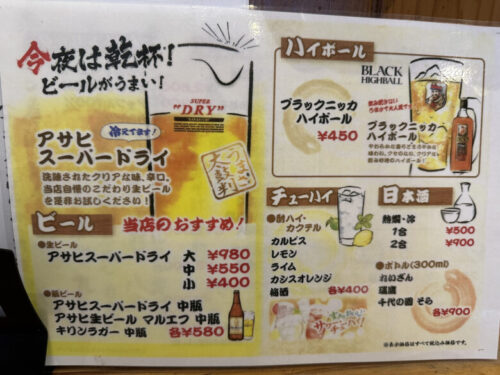 今夜は乾杯!
ビールがうまい!
SUPER
"DRY"
冷えてます!
アサヒ
スーパードライ
洗練されたクリアな味、辛口。
当店自慢のこだわり生ビール
を是非お試しください!
ビール 当店のおすすめ!
●生ビール
アサヒスーパードライ 大 ¥980
中 ¥550
小 ¥400
●瓶ビール
アサヒスーパードライ 中瓶
アサヒ生ビール マルエフ 中瓶
キリンラガー 中瓶 各¥580
ハイボール
BLACK
HIGHBALL
ブラックニッカ
ハイボール
¥450
ブラックニッカ
ハイボール
チューハイ
●酎ハイ・
カクテル
カルピス
レモン
ライム
カシスオレンジ
梅酒 各¥400
日本酒
●熱燗・冷
1合 ¥500
2合 ¥900
●ボトル(300ml)
れいざん
瑞鷹
千代の園 そら
各¥900
※表示価格はすべて税込み価格です。